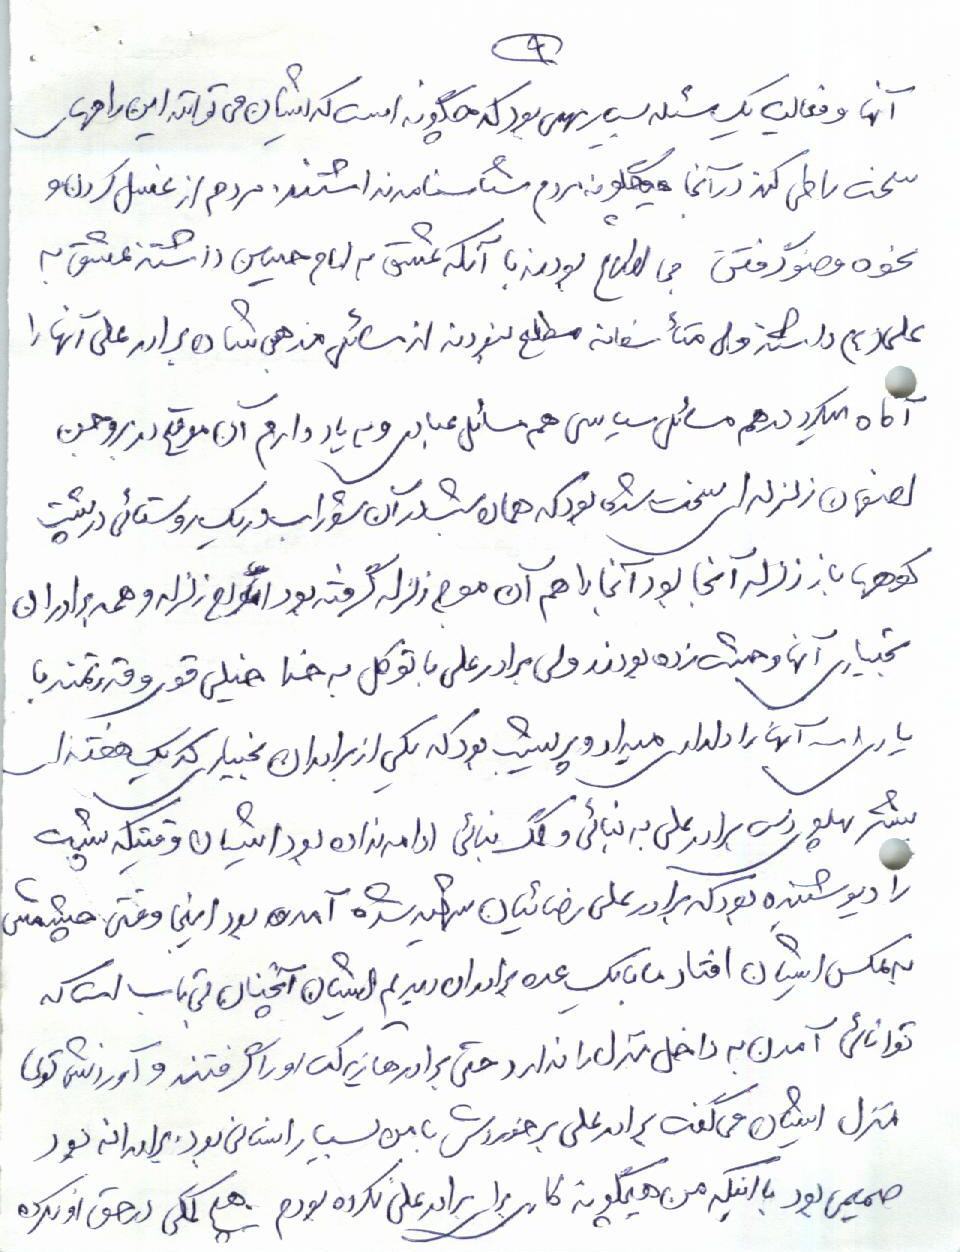 ۹
آنها و فعالیت یک مسئله بسیار مهمی بود که چگونه است که ایشان می توانند این راههای
سخت را طی کند در آنجا هیچگونه مردم شناسنامه نداشتند، مردم از غسل کردن و
نحوه وضو گرفتن بی اطلاع بودند با آنکه عشق به امام حسین داشتند عشق به
علی داشتند ولی متأسفانه مطلع نبودند از مسائل مذهبی شان برادر علی آنها را
آگاه میکرد در هم مسائل سیاسی هم مسائل عبادی و به یاد دارم آن موقع در بروجن
اصفهان زلزله ای سخت شده بود که همان شب در آن شوراب در یک روستائی در پشت
کوهها باز زلزله آنجا بود آنجا را هم آن موج زلزله گرفته بود امواج زلزله و همه برادران
بختیاری آنها وحشت زده بودند ولی برادر علی با توکل به خدا خیلی قوی و قدرتمند با
یاری آنها را دلداری میداد و پریشب بود که یکی از برادران بختیاری که یک هفته ای
بیشتر پهلوی برادر علی به بنائی و کمک بنائی ادامه نداده بود ایشان وقتیکه شب
رادیو شنیده بود که برادر علی رضائیان شهید شده آمده بود اینجا وقتی چشمش
به عکس ایشان افتاد ما با یک عده برادران دیدیم ایشان آنچنان بی تاب است که
توانائی آمدن به داخل منزل را ندارد حتی برادرها زیر کت او را گرفتند و آوردنش توی
منزل ایشان می گفت برادر علی برخوردش با من بسیار انسانی بود، برادرانه بود
صمیمی بود با اینکه من هیچگونه کاری برای برادر علی نکرده بودم هیچ کمکی در حق او نکرده